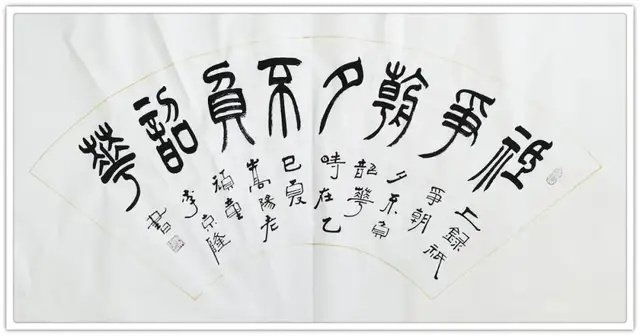 祗爭朝夕不負韶華
上錄祗
爭朝
夕不負
韶華
時在乙
巳夏
嵩陽老
頑童
李京隆
書